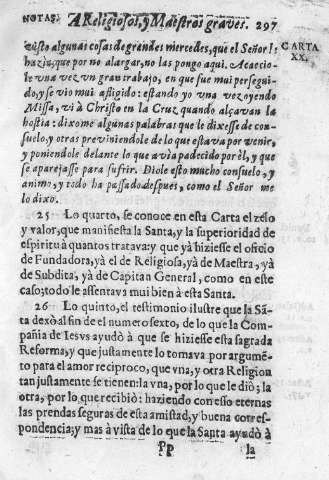 NOTAS. A Religiosos, y Maestros graves. 297
CARTA
XX.
visto algunas cosas de grandes mercedes, que el Señor le
hazia, que por no alargar, no las pongo aqui. Acaecio-
le vna vez vn gran trabajo, en que fue mui persegui-
do, y se vio mui afligido: estando yo vna vez oyendo
Missa, vi à Christo en la Cruz quando alçavan la
hostia: dixome algunas palabras que le dixesse de con-
suelo, y otras previniendole de lo que estava por venir,
y poniendole delante lo que avia padecido por èl, y que
se aparejasse para sufrir. Diole esto mucho consuelo, y
animo, y todo ha passado despues, como el Señor me
lo dixo.
25 Lo quarto, se conoce en esta Carta el zelo
y valor, que manifiesta la Santa, y la superioridad de
espiritu à quantos tratava: y que yà hiziesse el oficio
de Fundadora, yà el de Religiosa, yà de Maestra, yà
de Subdita, yà de Capitan General, como en este
caso; todo le assentava mui bien à esta Santa.
26 Lo quinto, el testimonio ilustre que la Sã-
ta dexò al fin de el numero sexto, de lo que la Com-
pañia de Iesvs ayudò à que se hiziesse esta sagrada
Reforma, y que justamente lo tomava por argumẽ-
to para el amor reciproco, que vna, y otra Religion
tan justamente se tienen: la vna, por lo que le diò; la
otra, por lo que recibiò: haziendo con esso eternas
las prendas seguras de esta amistad, y buena corres-
pondencia; y mas à vista de lo que la Santa ayudò à
PP la